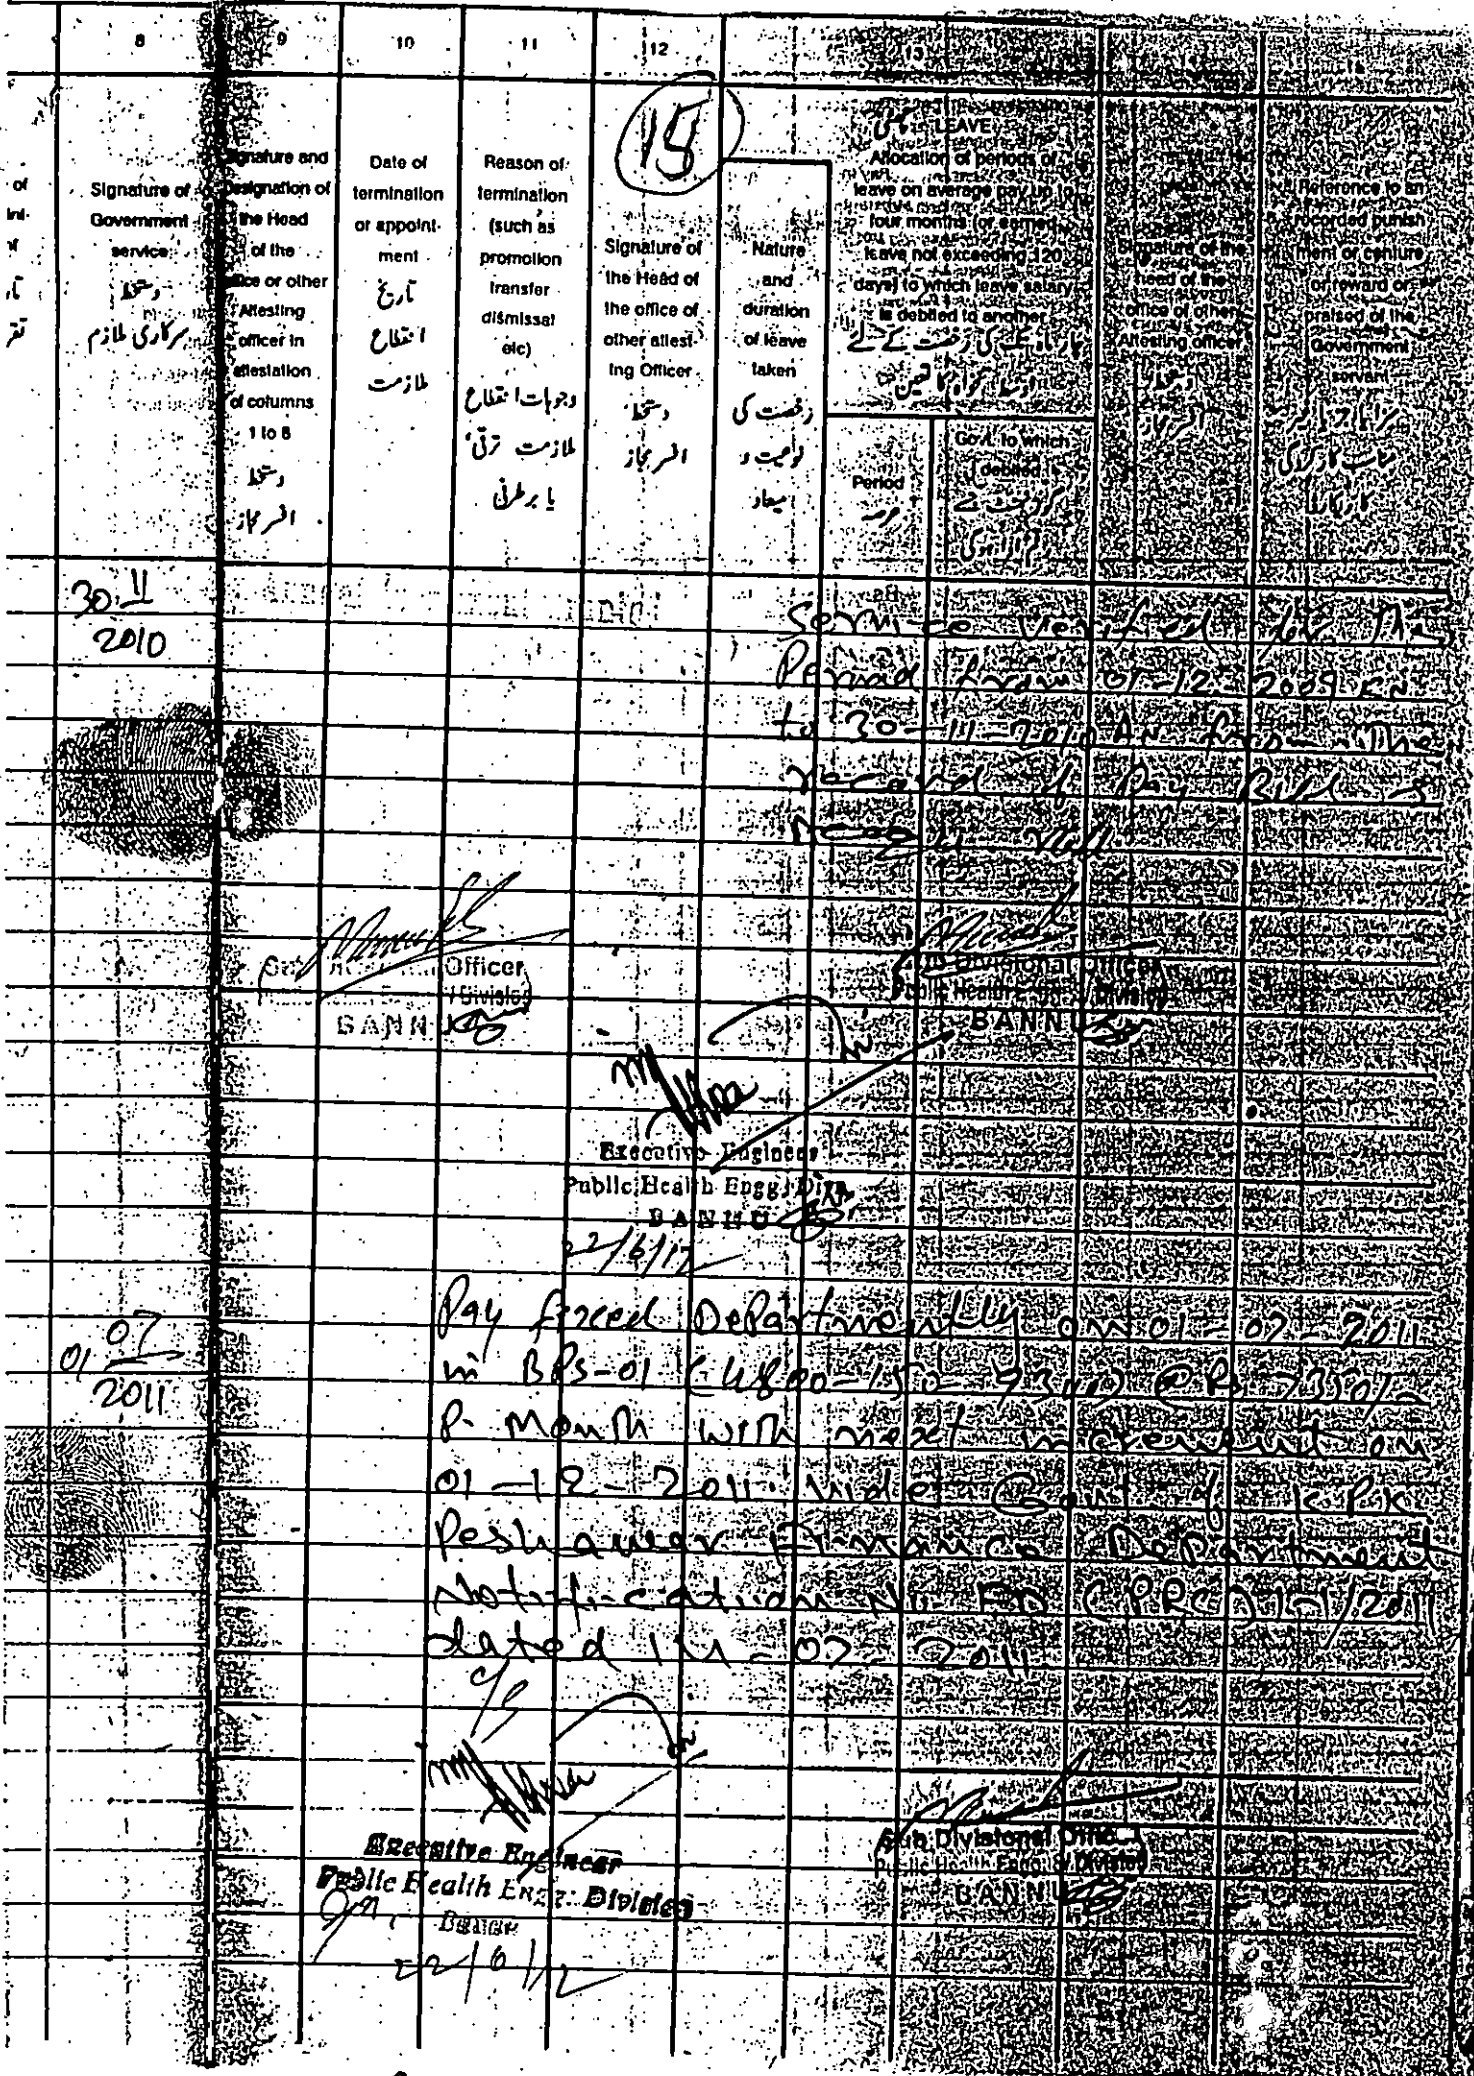 8 9 10 11 12 13
15
of
Signature of
Government
service
دستخط
سرکاری ملازم
Signature and
Designation of
the Head
of the
office or other
Attesting
officer in
attestation
of columns
1 to 8
دستخط
افسر مجاز
Date of
termination
or appoint-
ment
تاریخ
انقطاع
ملازمت
Reason of
termination
(such as
promotion
transfer
dismissal
etc)
وجوہات انقطاع
ملازمت ترقی
یا برطرفی
Signature of
the Head of
the office of
other attest-
ing Officer
دستخط
افسر مجاز
Nature
and
duration
of leave
taken
رخصت کی
نوعیت و
میعاد
LEAVE
Allocation of periods of
leave on average pay up to
four months (or earned
leave not exceeding 120
days) to which leave salary
is debited to another
Period
عرصہ
Govt. to which
debited
Signature of the
head of the
office of other
Attesting officer
دستخط
افسر مجاز
Reference to an
recorded punish
ment or centure
or reward or
praised of the
Government
servant
30-11
2010
Service verified for the
Period from 01-12-2009 FN
to 30-11-2010 AN from the
record of Pay Bill &
Roll
Officer
Division
BANNU
Sub Divisional Officer
Public Health Engg Division
BANNU
Executive Engineer
Public Health Engg: Divn
BANNU
22/6/12
01 07
2011
Pay fixed Departmentlly on 01-07-2011
in BPS-01 (4800-150-9300) @ Rs 7350/-
P. Month with next increment on
01-12-2011 vide Govt of KPK
Peshawar Finance Department
Notification No FD (PRC) 1-1/2011
dated 14-07-2011
Executive Engineer
Public Health Engg: Division
Bannu
22/6/12
Sub Divisional Officer
Public Health Engg: Division
BANNU